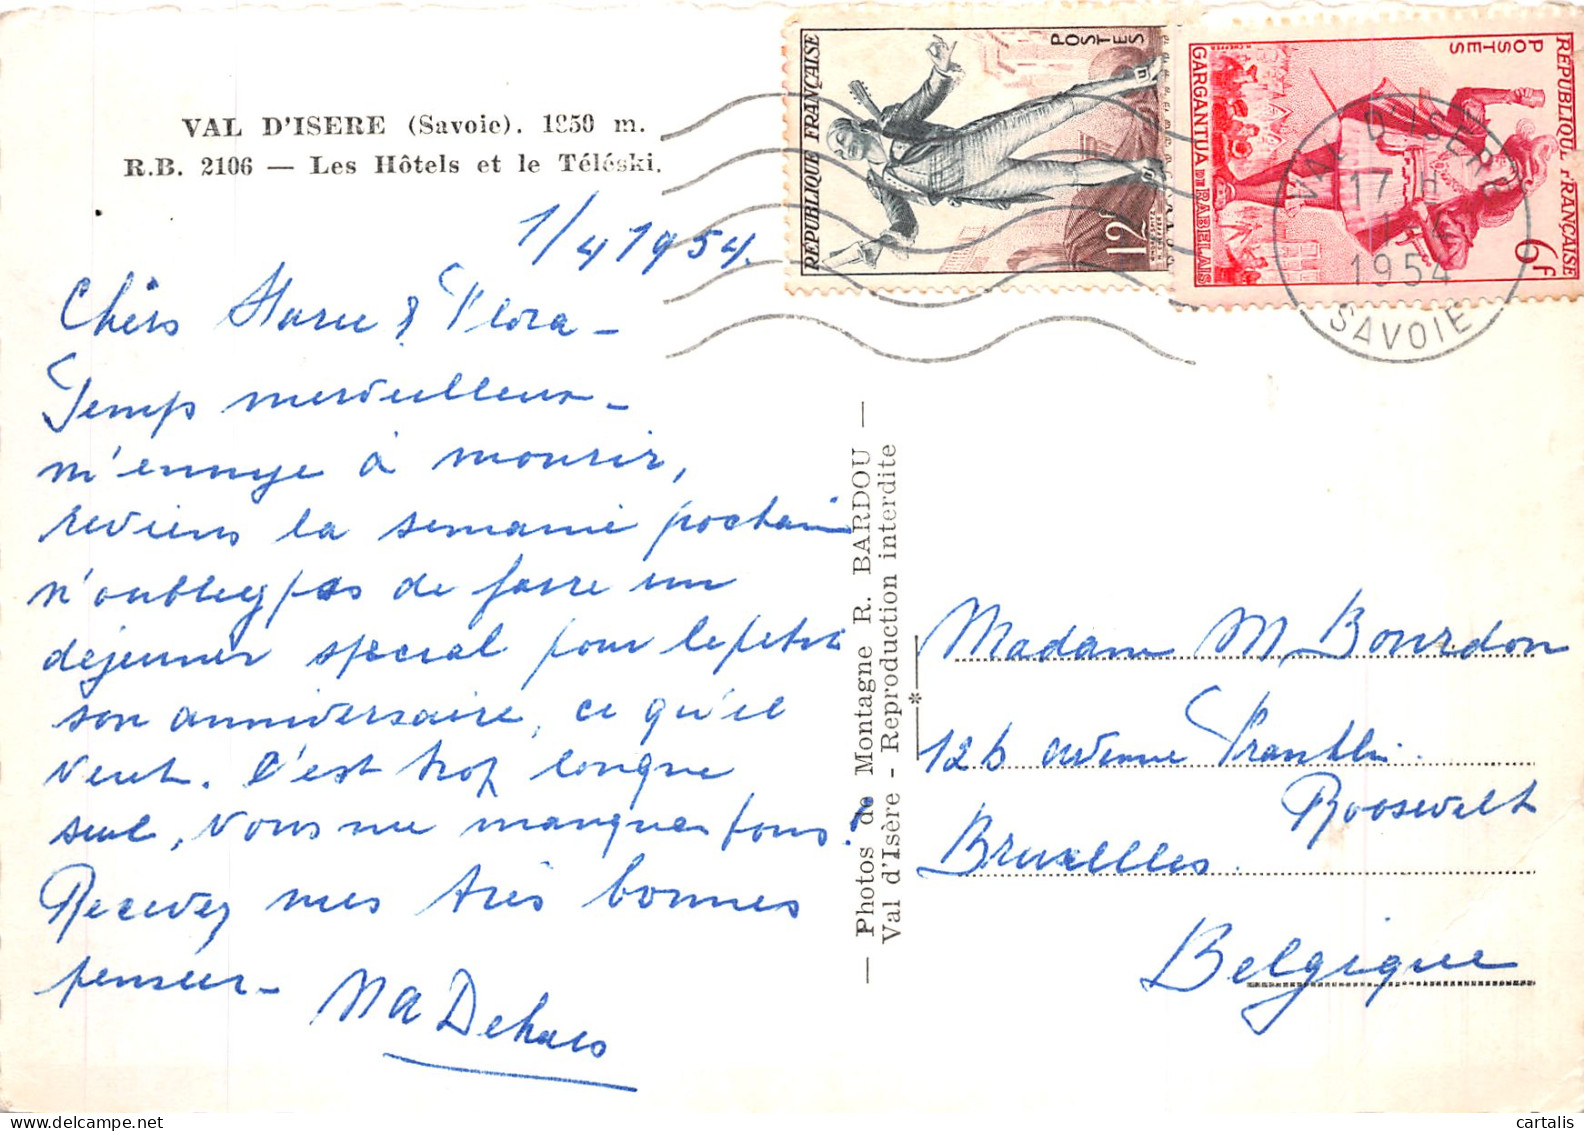 VAL D'ISERE (Savoie). 1850 m.
R.B. 2106 — Les Hôtels et le Téléski.
1/4 1954.
Chers & Flora —
Temps merveilleux —
m'ennuye à mourir,
reviens la semaine pochain
n'oubliez pas de faire un
déjeuner special pour le petit
son anniversaire, ce qu'il
veut. C'est trop longue
seul, vous me manquer tous!
Recevez mes très bonnes
pensées —
MA Dehaes
— Photos de Montagne R. BARDOU —
Val d'Isère - Reproduction interdite
*
Madame M Bourdon
126 avenue Franklin
Roosevelt
Bruxelles.
Belgique
RÉPUBLIQUE FRANÇAISE
POSTES
12f
RÉPUBLIQUE FRANÇAISE
POSTES
GARGANTUA DE RABELAIS
6f
VAL D'ISERE
17 H
1-4
1954
SAVOIE
cartalis